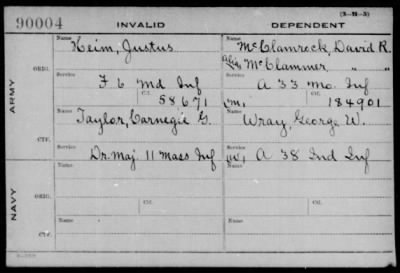 (3-M-3)
90004 INVALID DEPENDENT
Name Name
Keim, Justus McClamrock, David R.
Alias McClammer, " "
ORIG. Service Service
F 6 Md Inf A 33 Mo. Inf
Ctf. Ctf.
58671 (m) 184901
ARMY
Name Name
Taylor, Carnegie G. Wray, George W.
CTF. Service Service
Dr. Maj. 11 Mass Inf (w) A 38 Ind Inf
Name Ctf. Name Ctf.
ORIG. Service Service
NAVY
Name Name
CTF. Service Service